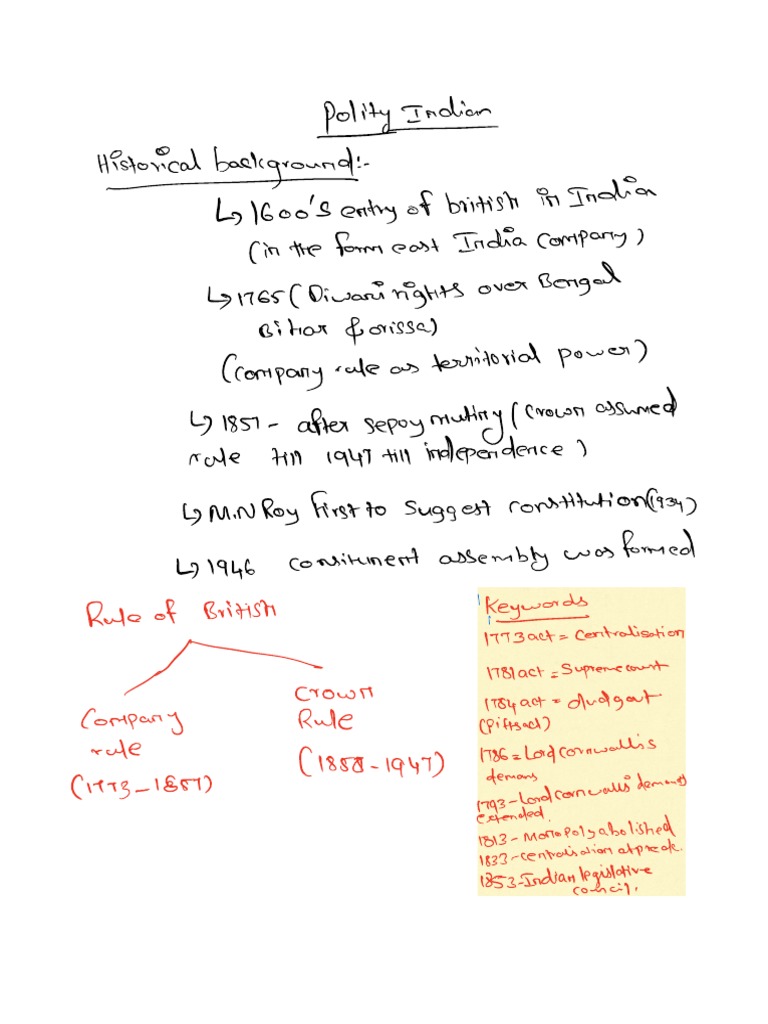 Polity Indian
Historical background:-
↳ 1600's entry of british in India
(in the form east India company)
↳ 1765 (Diwani rights over Bengal
Bihar & orissa)
(company rule as territorial power)
↳ 1857 - after sepoy mutiny (crown assumed
rule till 1947 till independence)
↳ M.N Roy first to suggest constitution (1934)
↳ 1946 consituent assembly was formed
Rule of British
Company
rule
(1773-1857)
Crown
Rule
(1858-1947)
Keywords
1773 act = Centralisation
1781 act = Supreme court
1784 act = dudgovt
(Pitts act)
1786 = Lord cornwallis
demans
1793 - Lord cornwallis demands
extended.
1813 - Monopoly abolished
1833 - centralisation at preak.
1853 - Indian legislative
council.